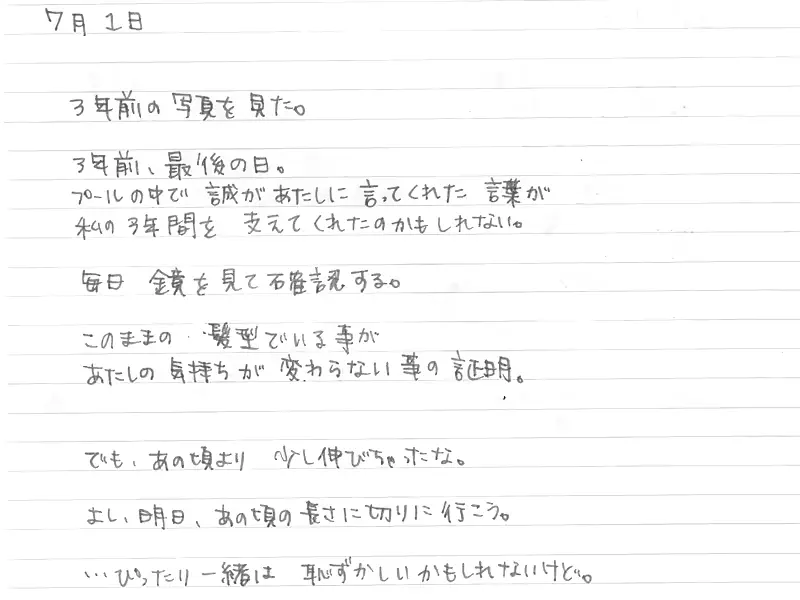 7月1日
3年前の写真を見た。
3年前、最後の日。
プールの中で 誠があたしに言ってくれた 言葉が
私の3年間を 支えてくれたのかもしれない。
毎日 鏡を見て確認する。
このままの 髪型でいる事が
あたしの気持ちが 変わらない事の証明。
でも、あの頃より 少し伸びちゃったな。
よし、明日、あの頃の長さに切りに行こう。
…ぴったり一緒は 恥ずかしいかもしれないけど。